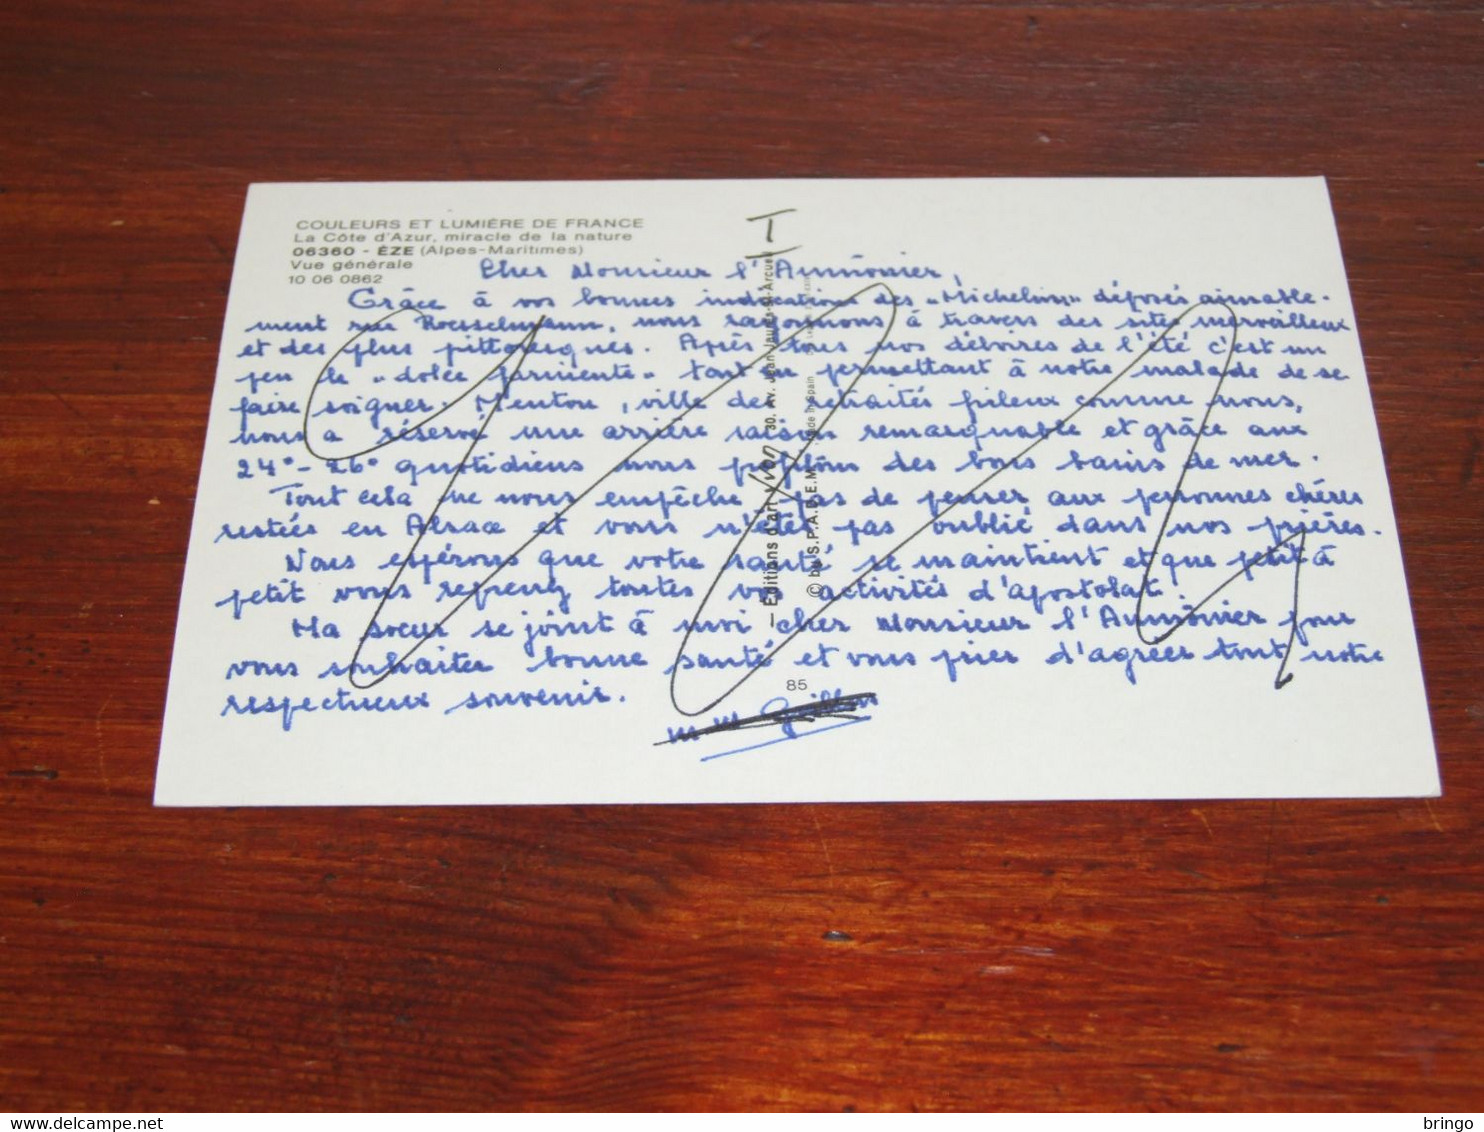 COULEURS ET LUMIÈRE DE FRANCE
La Côte d'Azur, miracle de la nature
06360 - ÈZE (Alpes-Maritimes)
Vue générale
10 06 0862
I
Cher Monsieur l'Aumônier,
Grâce à vos bonnes indications des "Michelin" déposés aimable-
ment rue Roesselmann, nous rayonnons à travers des sites merveilleux
et des plus pittoresques. Après tous nos déboires de l'été c'est un
peu le "dolce farniente" tout en permettant à notre malade de se
faire soigner. Menton, ville des retraités frileux comme nous,
nous a réservé une arrière saison remarquable et grâce aux
24° - 26° quotidiens nous profitons des bons bains de mer.
Tout cela ne nous empêche pas de penser aux personnes chères
restées en Alsace et vous n'êtes pas oublié dans nos prières.
Nous espérons que votre santé se maintient et que petit à
petit vous reprenez toutes vos activités d'apostolat.
Ma soeur se joint à moi cher Monsieur l'Aumônier pour
vous souhaiter bonne santé et vous prier d'agréer tout notre
respectueux souvenir.
85
— Editions d'art Yvon 30, Av. Jean Jaurès
© by S.P.A.D.E.M.
Made in Spain
delcampe.net
bringo